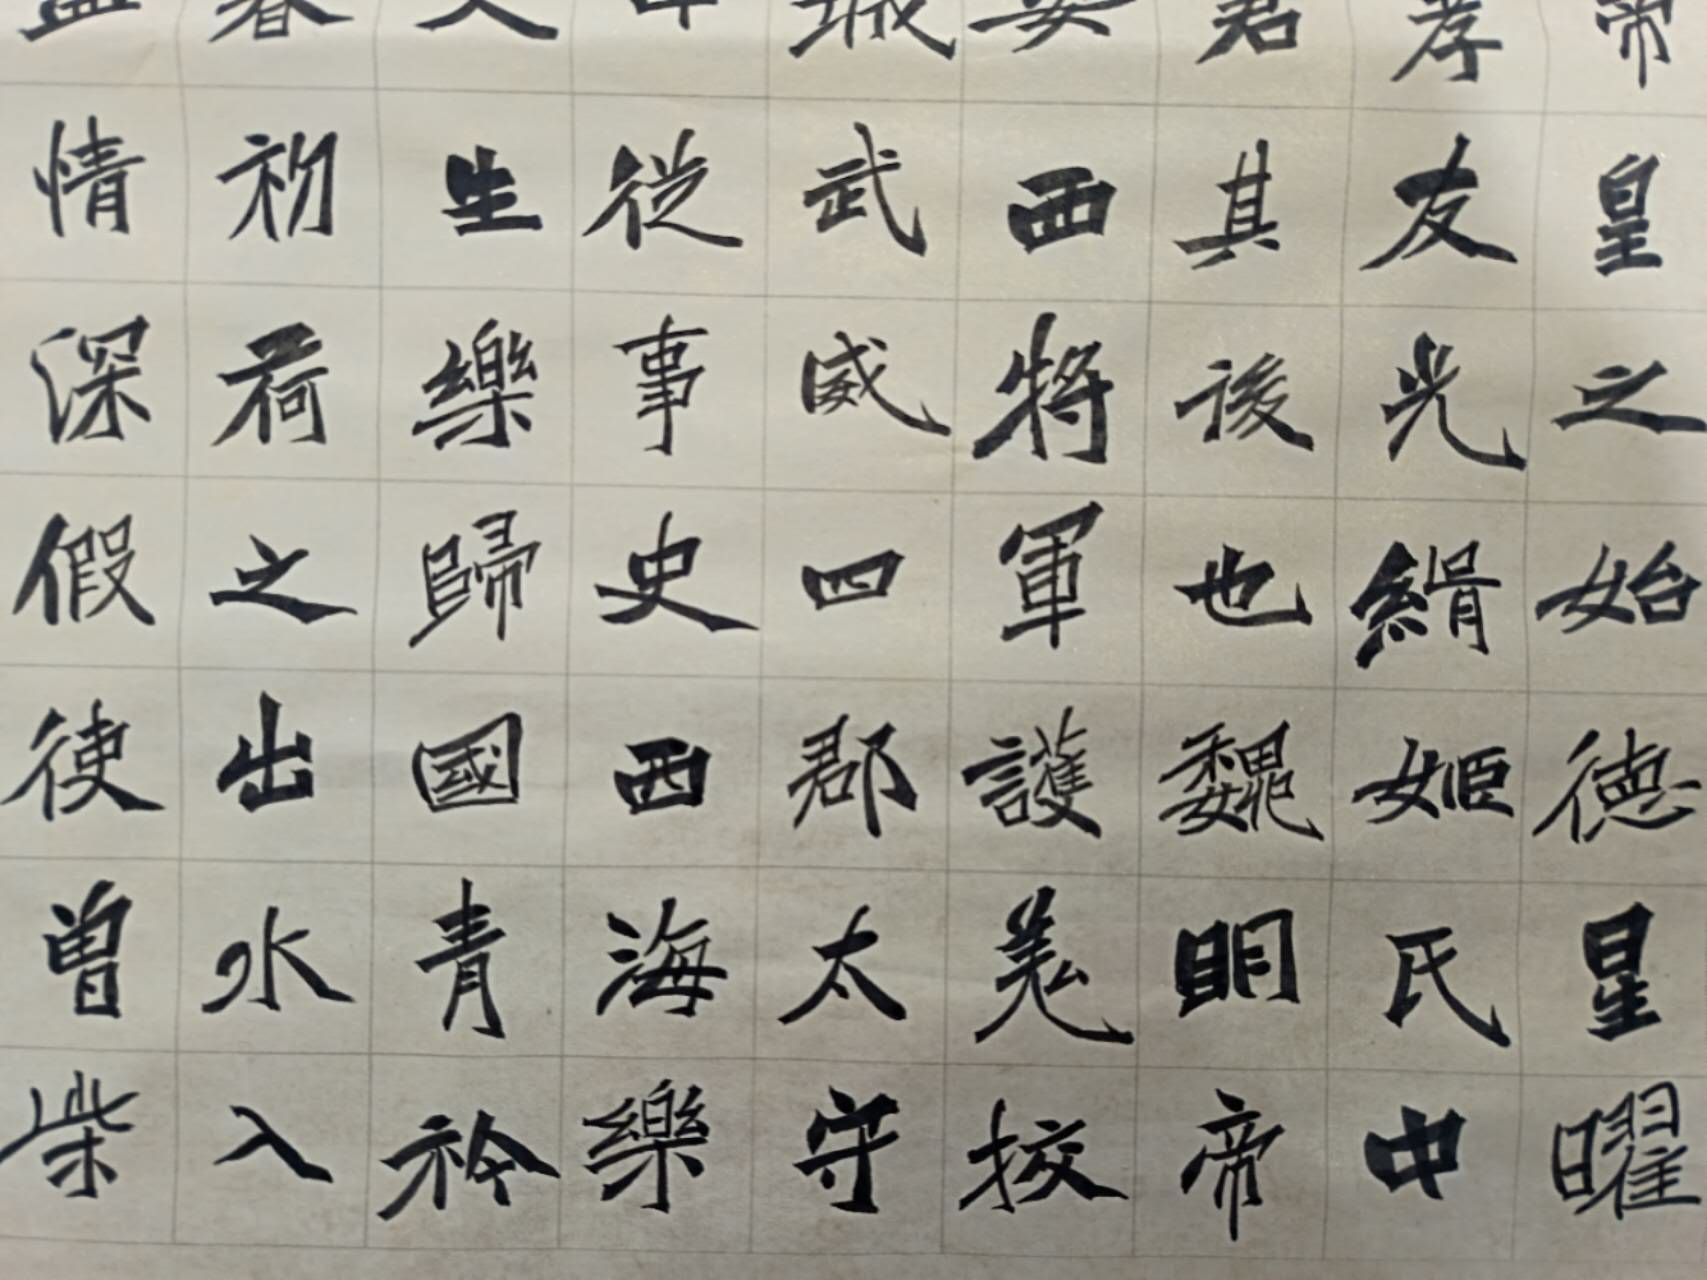 帝皇之始德星曜
孝友光緝姬氏中
君其後也魏明帝
安西將軍護羌挍
城武威四郡太守
中從事史西海樂
父生樂歸國青衿
春初荷之出水入
情深假使曾柴